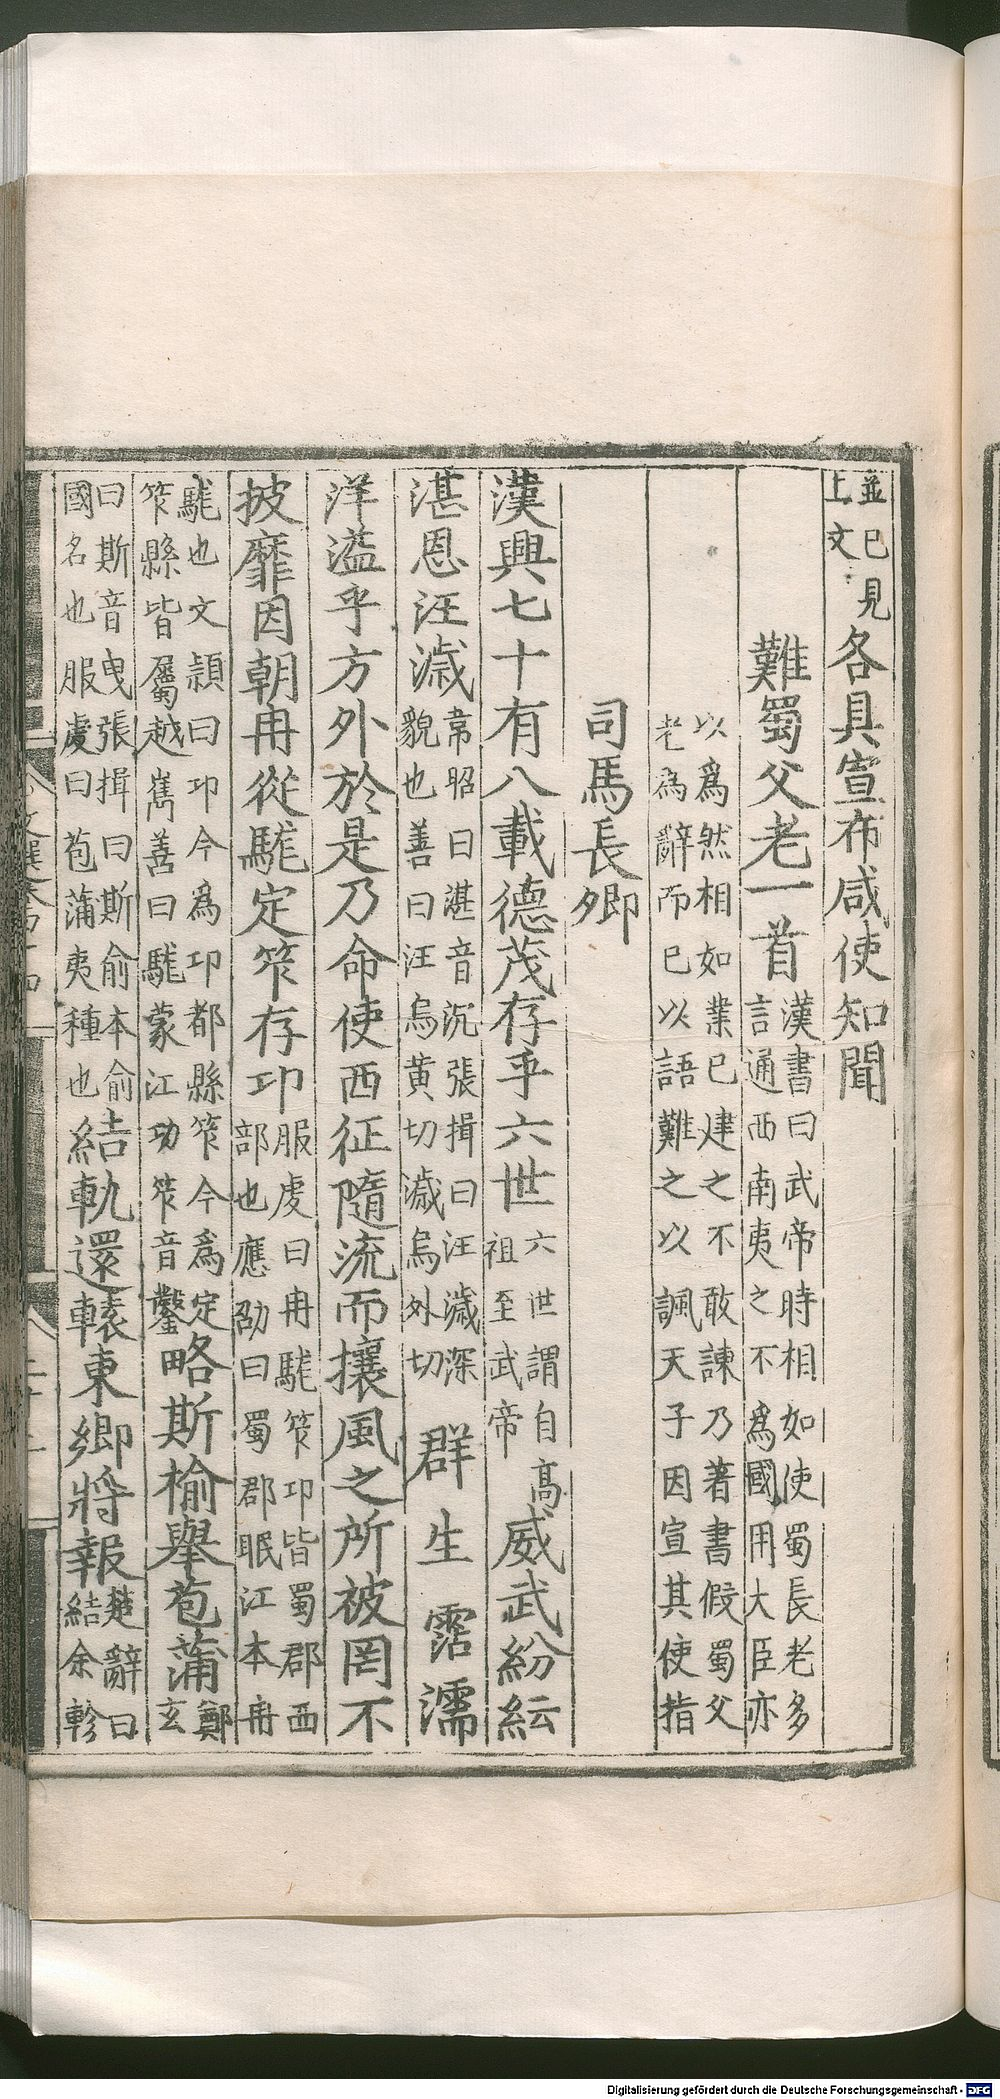 並已見上文各具宣布咸使知聞
難蜀父老一首漢書曰武帝時相如使蜀長老多言通西南夷之不爲國用大臣亦
以爲然相如業已建之不敢諫乃著書假蜀父老爲辭而已以語難之以諷天子因宣其使指
司馬長卿
漢興七十有八載德茂存乎六世六世謂自高祖至武帝威武紛紜
湛恩汪濊韋昭曰湛音沉張揖曰汪濊深貌也善曰汪烏黄切濊烏外切群生霑濡
洋溢乎方外於是乃命使西征隨流而攘風之所被罔不
披靡因朝冉從駹定筰存卭服虔曰冉駹筰卭皆蜀郡西部也應劭曰蜀郡岷江本冉
駹也文穎曰卭今爲卭都縣筰今爲定筰縣皆屬越嶲善曰駹蒙江切筰音鑿略斯榆舉苞蒲鄭玄
曰斯音曳張揖曰斯俞本俞國名也服虔曰苞蒲夷種也結軌還轅東鄉將報楚辭曰結余軫
文選卷四十四